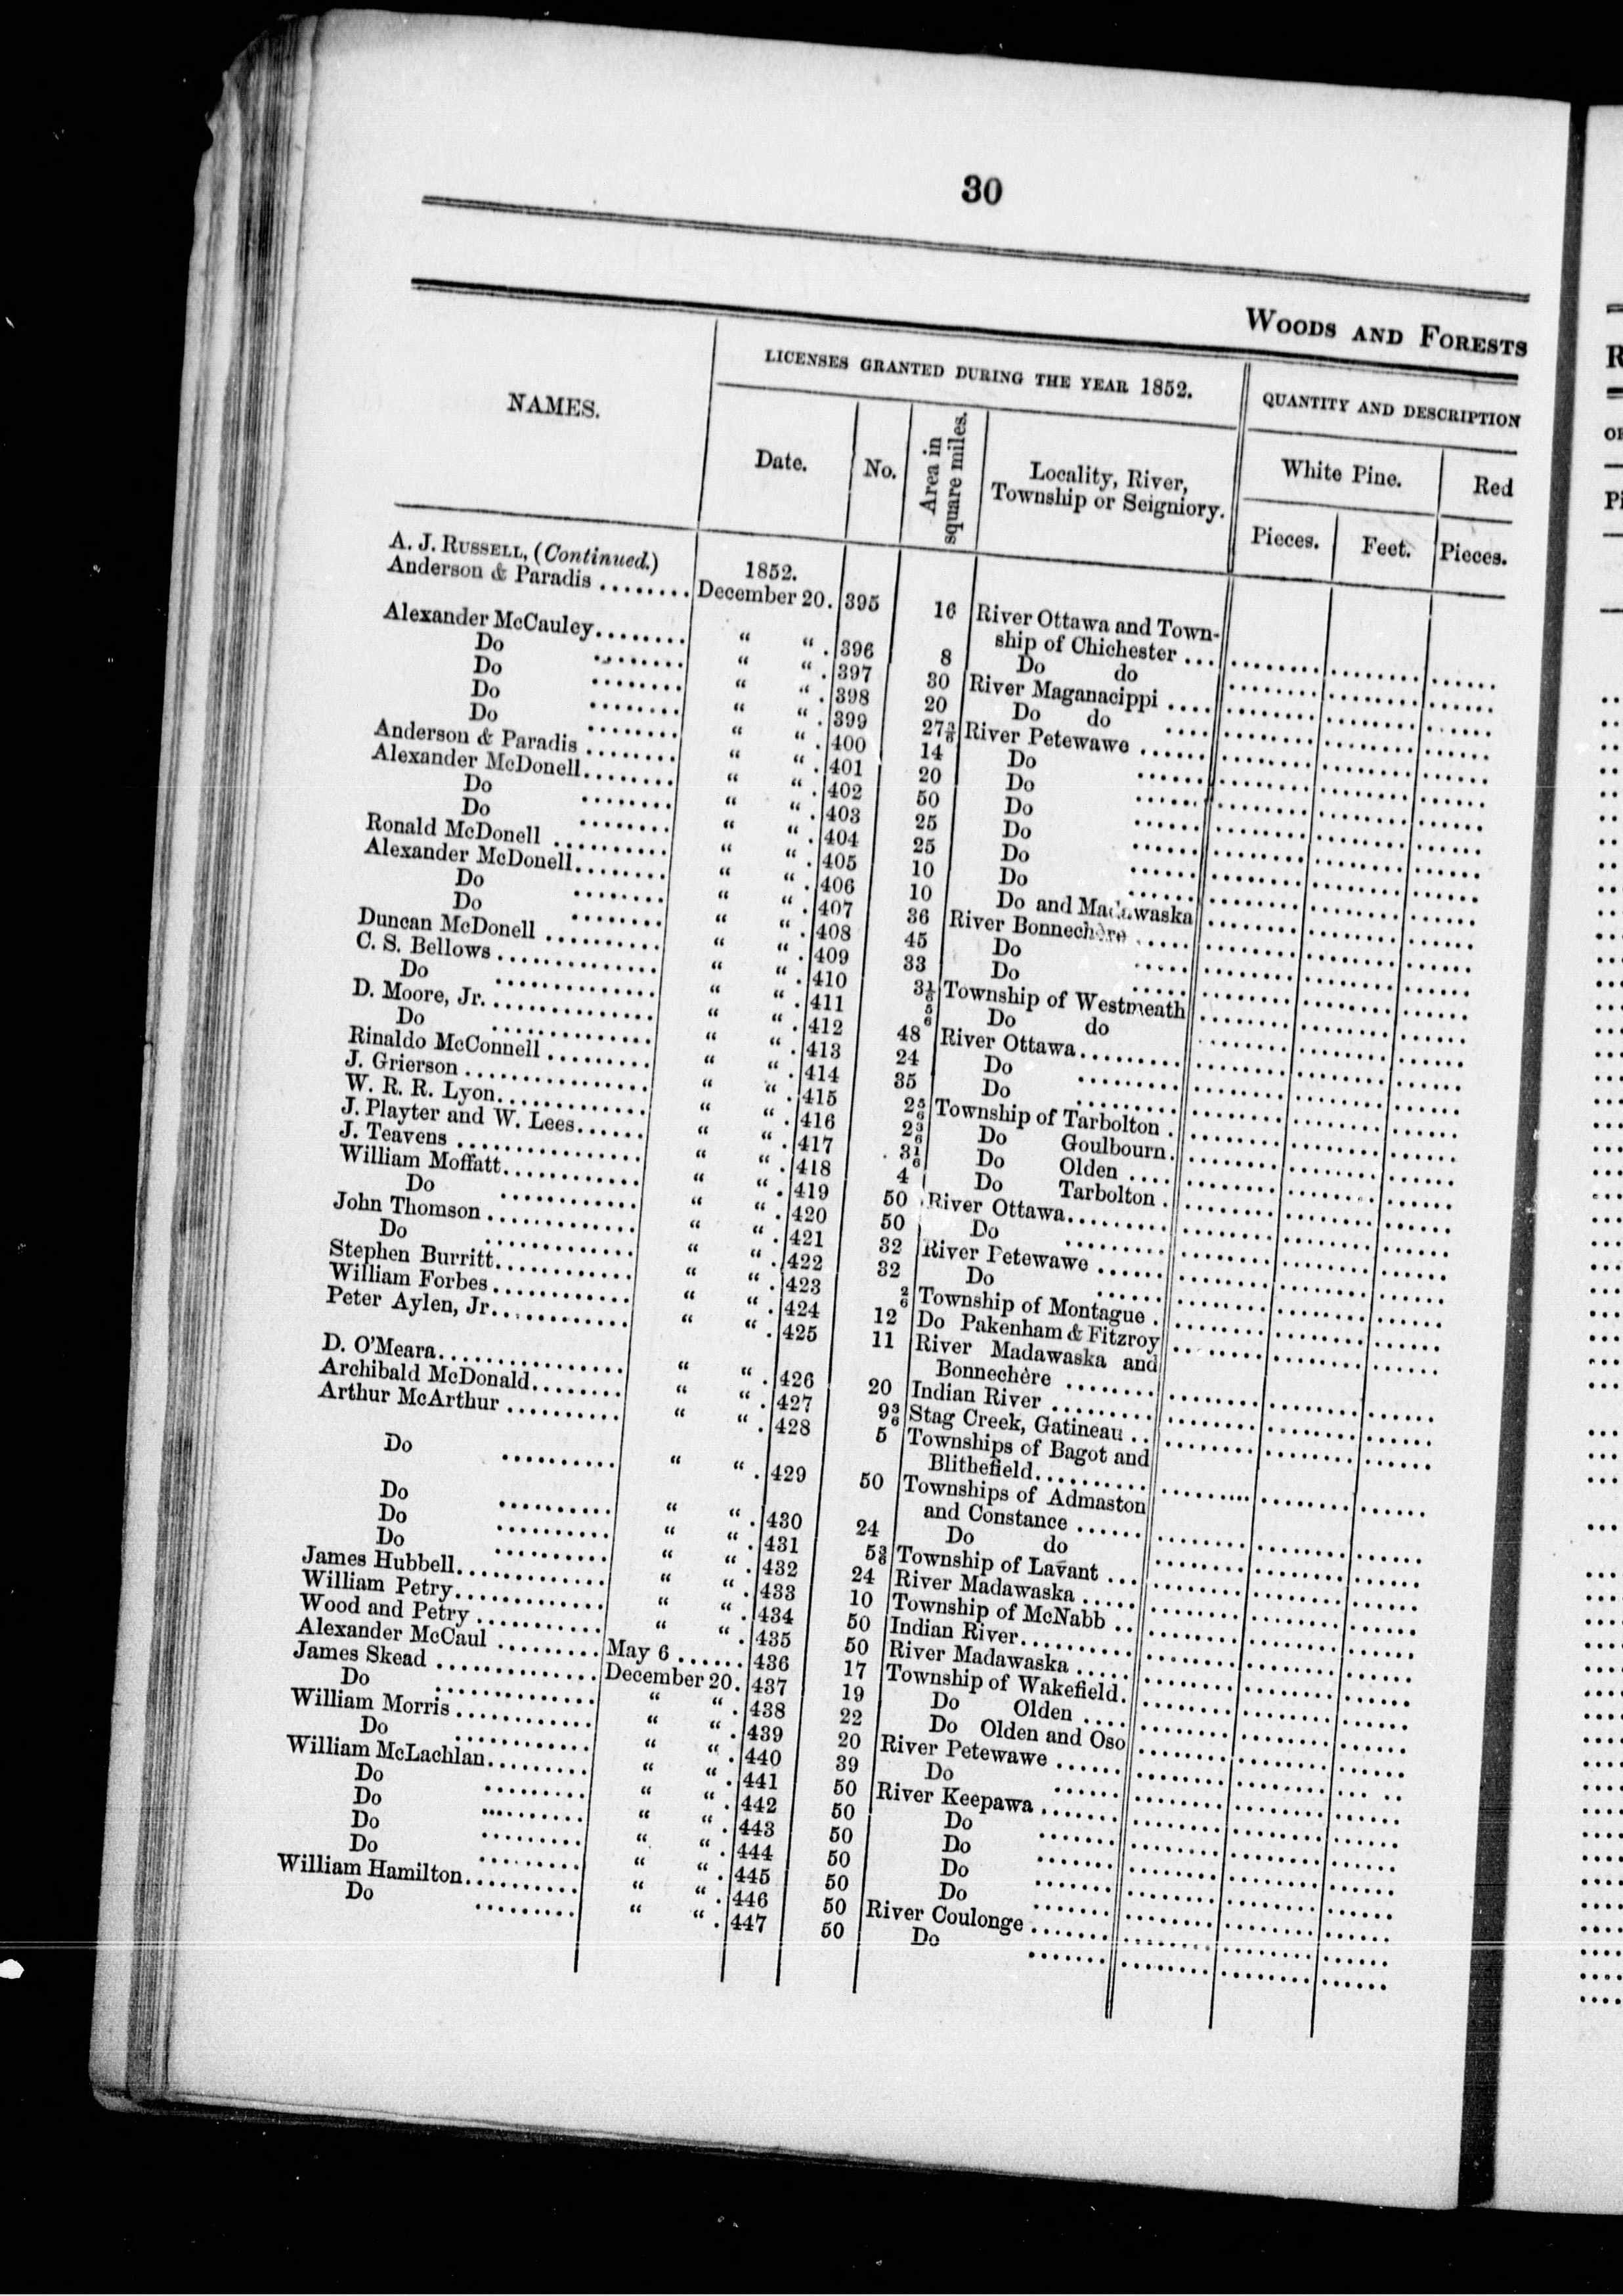 30
WOODS AND FORESTS
NAMES.
LICENSES GRANTED DURING THE YEAR 1852.
QUANTITY AND DESCRIPTION
Date.
No.
Area in
square miles.
Locality, River,
Township or Seigniory.
White Pine.
Red
Pieces.
Feet.
Pieces.
A. J. RUSSELL, (Continued.) 1852.
Anderson & Paradis ........ December 20. 395 16 River Ottawa and Town-
ship of Chichester ...
Alexander McCauley........ “ “ . 396 8 Do do
Do ........ “ “ . 397 30 River Maganacippi ....
Do ........ “ “ . 398 20 Do do ....
Do ........ “ “ . 399 27 3/6 River Petewawe ......
Do ........ “ “ . 400 14 Do ......
Anderson & Paradis ........ “ “ . 401 20 Do ......
Alexander McDonell........ “ “ . 402 50 Do ......
Do ........ “ “ . 403 25 Do ......
Do ........ “ “ . 404 25 Do ......
Ronald McDonell .......... “ “ . 405 10 Do ......
Alexander McDonell........ “ “ . 406 10 Do and Madawaska
Do ........ “ “ . 407 36 River Bonnechère .....
Do ........ “ “ . 408 45 Do .....
Duncan McDonell .......... “ “ . 409 33 Do .....
C. S. Bellows .............. “ “ . 410 3 1/6 Township of Westmeath
Do .............. “ “ . 411 5/6 Do do
D. Moore, Jr. .............. “ “ . 412 48 River Ottawa.........
Do .............. “ “ . 413 24 Do .........
Rinaldo McConnell ......... “ “ . 414 35 Do .........
J. Grierson ................ “ “ . 415 2 5/6 Township of Tarbolton .
W. R. R. Lyon............. “ “ . 416 2 3/6 Do Goulbourn.
J. Playter and W. Lees...... “ “ . 417 3 1/6 Do Olden ....
J. Teavens ................ “ “ . 418 4 Do Tarbolton .
William Moffatt............ “ “ . 419 50 River Ottawa.........
Do ............ “ “ . 420 50 Do .........
John Thomson ............. “ “ . 421 32 River Petewawe ......
Do ............. “ “ . 422 32 Do ......
Stephen Burritt............ “ “ . 423 2/6 Township of Montague .
William Forbes ............ “ “ . 424 12 Do Pakenham & Fitzroy
Peter Aylen, Jr............ “ “ . 425 11 River Madawaska and
Bonnechère ........
D. O'Meara................ “ “ . 426 20 Indian River .........
Archibald McDonald........ “ “ . 427 9 3/6 Stag Creek, Gatineau ..
Arthur McArthur .......... “ “ . 428 5 Townships of Bagot and
Blithefield..........
Do .......... “ “ . 429 50 Townships of Admaston
and Constance ......
Do .......... “ “ . 430 24 Do do
Do .......... “ “ . 431 5 3/6 Township of Lavant ...
Do .......... “ “ . 432 24 River Madawaska .....
James Hubbell............. “ “ . 433 10 Township of McNabb ..
William Petry............. “ “ . 434 50 Indian River..........
Wood and Petry ........... “ “ . 435 50 River Madawaska .....
Alexander McCaul ......... May 6 ...... 436 17 Township of Wakefield.
James Skead .............. December 20. 437 19 Do Olden ....
Do .............. “ “ . 438 22 Do Olden and Oso
William Morris ............ “ “ . 439 20 River Petewawe ......
Do ............ “ “ . 440 39 Do ......
William McLachlan......... “ “ . 441 50 River Keepawa .......
Do ......... “ “ . 442 50 Do .......
Do ......... “ “ . 443 50 Do .......
Do ......... “ “ . 444 50 Do .......
Do ......... “ “ . 445 50 Do .......
William Hamilton.......... “ “ . 446 50 River Coulonge .......
Do ......... “ “ . 447 50 Do .......